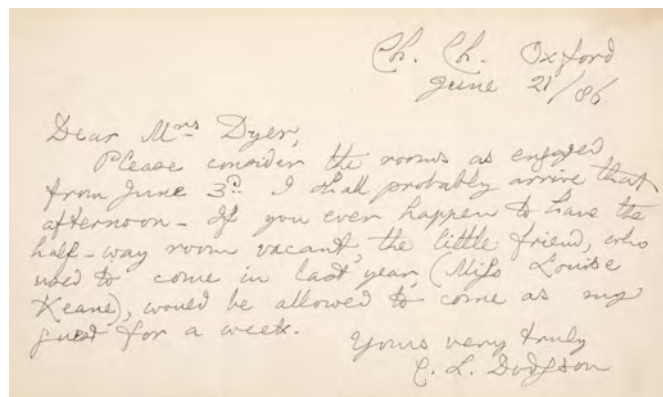 Ch. Ch. Oxford
June 21/86
Dear Mrs Dyer,
Please consider the rooms as engaged
from June 3d. I shall probably arrive that
afternoon – If you ever happen to have the
half-way room vacant, the little friend, who
used to come in last year, (Miss Louise
Keane), would be allowed to come as my
guest for a week.
Yours very truly
C. L. Dodgson